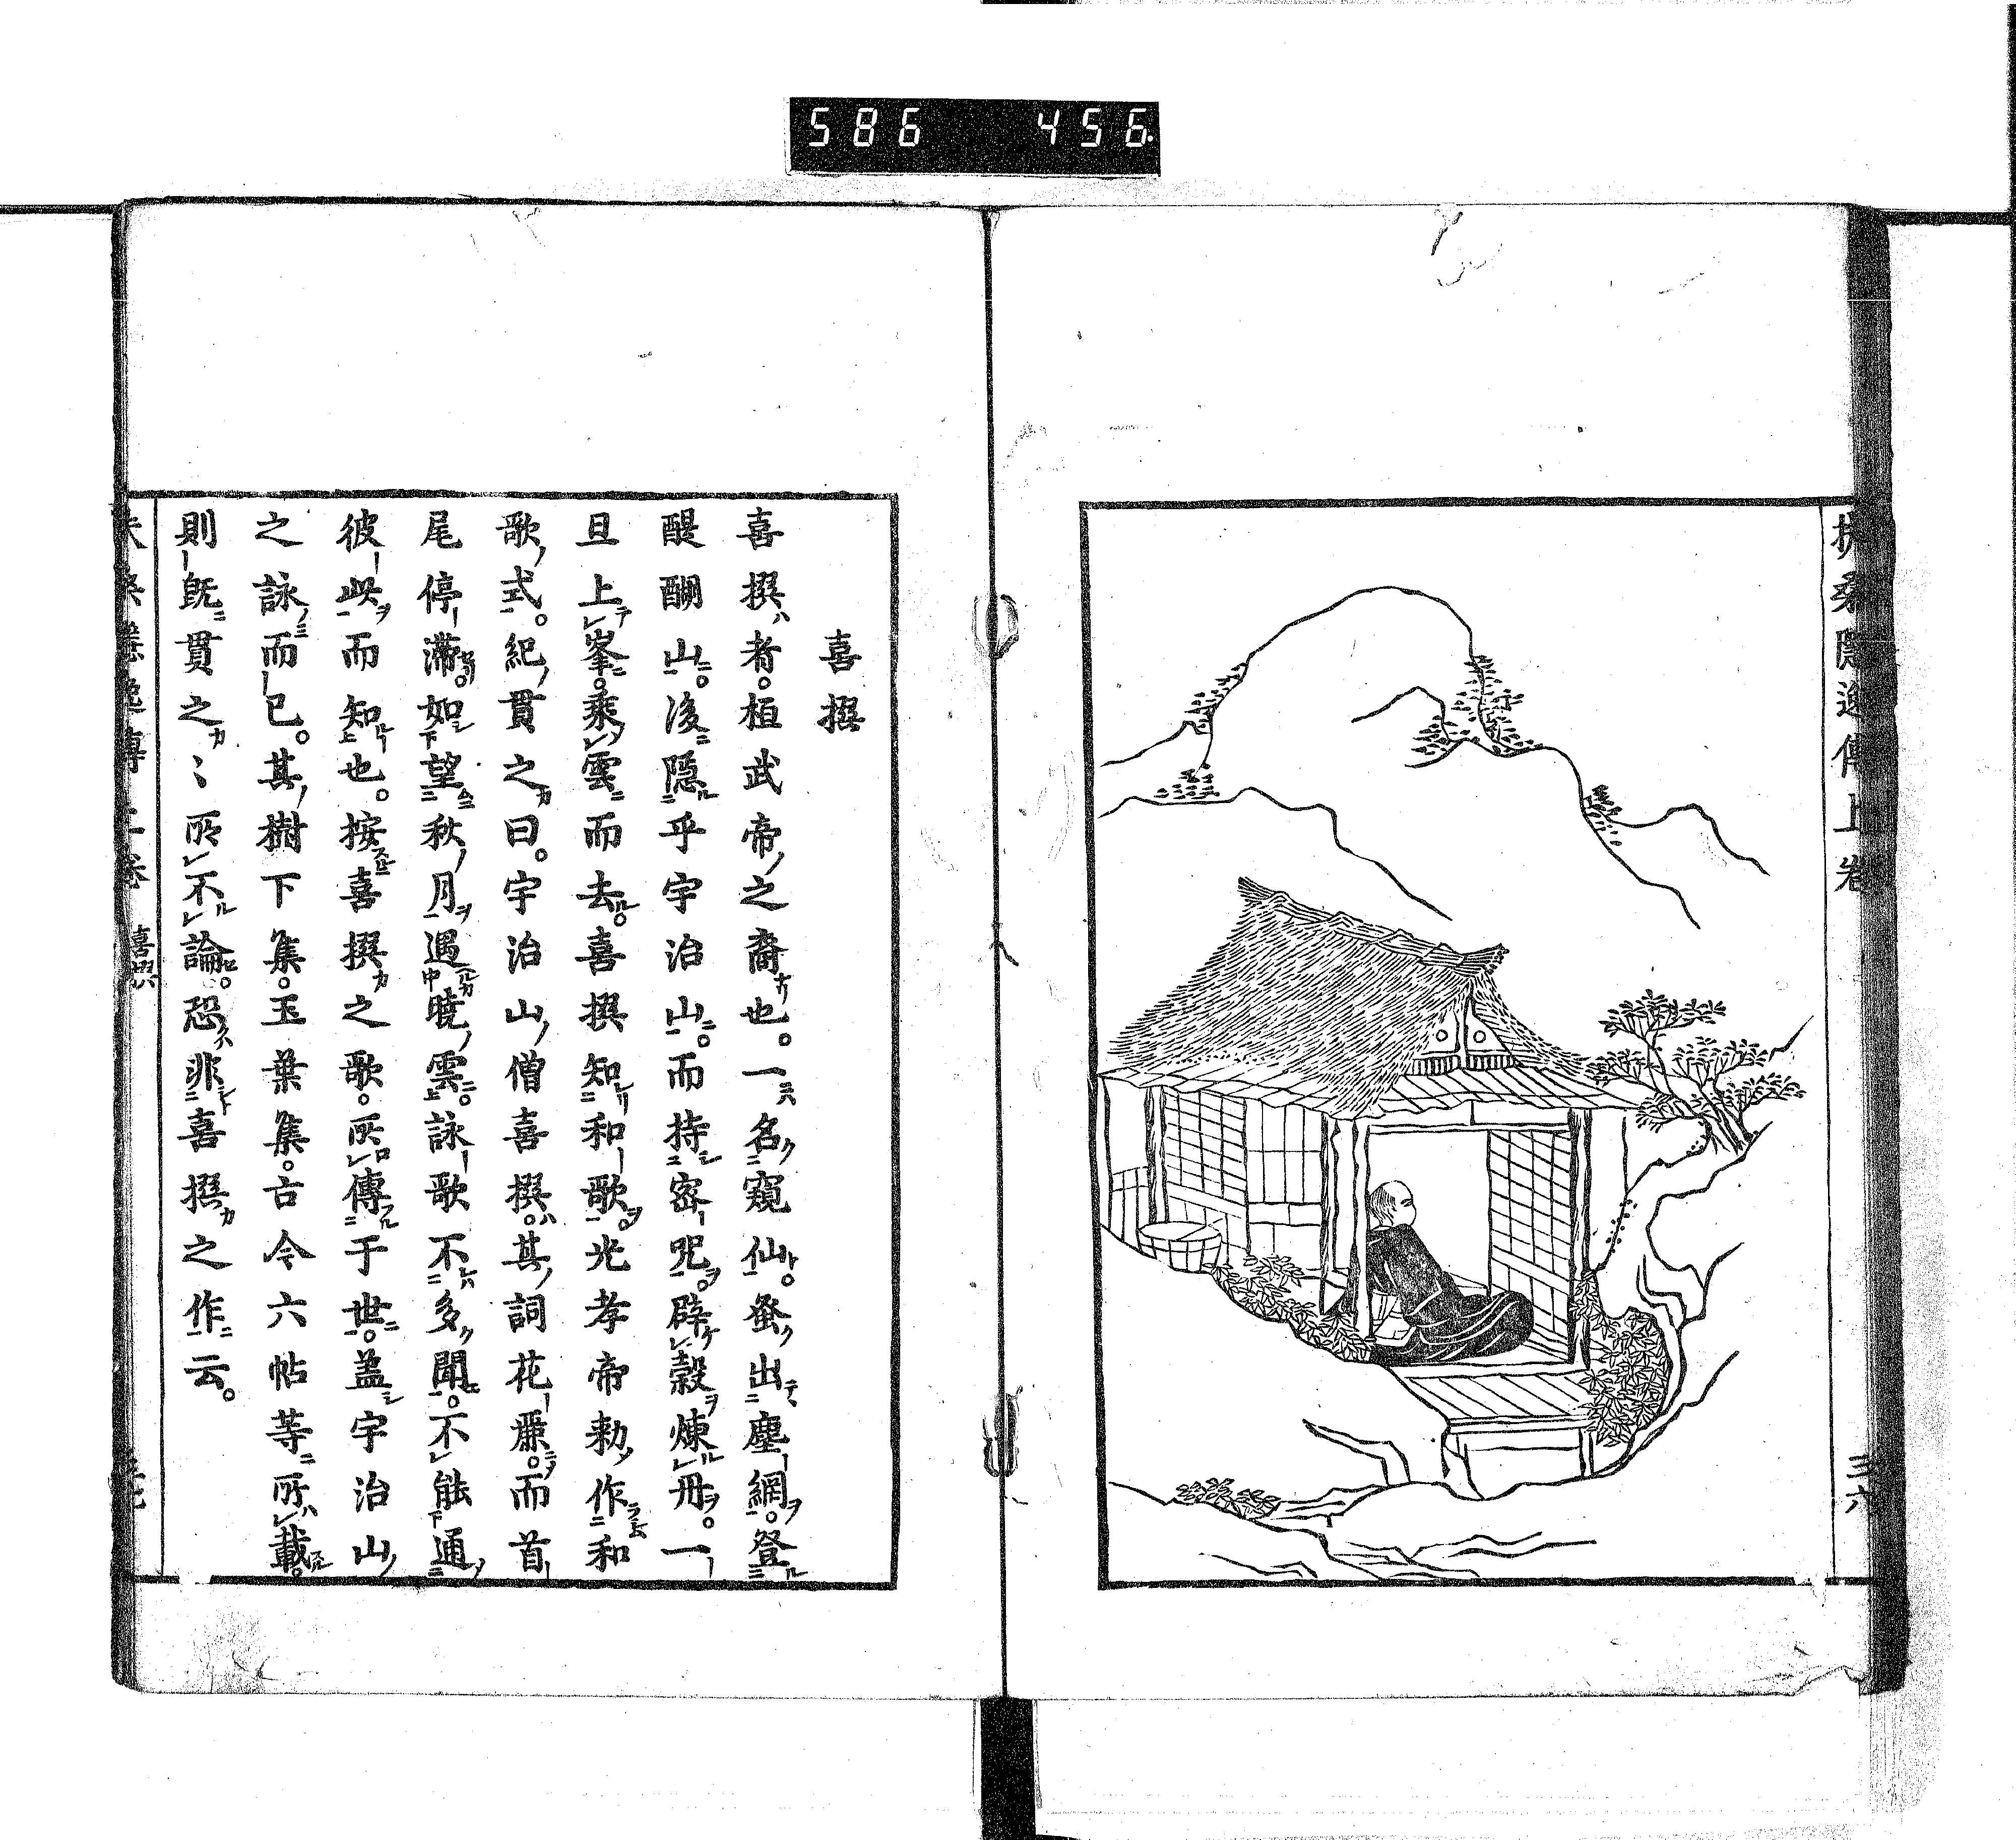 586 456.
扶桑隱逸傳上卷
三六
喜撰
喜撰者。桓武帝之裔也。一名窺仙。蚤出塵網。登
醍醐山。後隱乎宇治山。而持密呪。辟穀煉丹。一
旦上峯。乘雲而去。喜撰知和歌。光孝帝勅作和
歌式。紀貫之曰。宇治山僧喜撰。其詞花麗。而首
尾停滯。如望秋月遇曉雲。詠歌不多聞。不能通
彼此而知也。按喜撰之歌。所傳于世。蓋宇治山
之詠而已。其樹下集。玉葉集。古今六帖等所載。
則既貫之〻所不論。恐非喜撰之作云。
喜撰